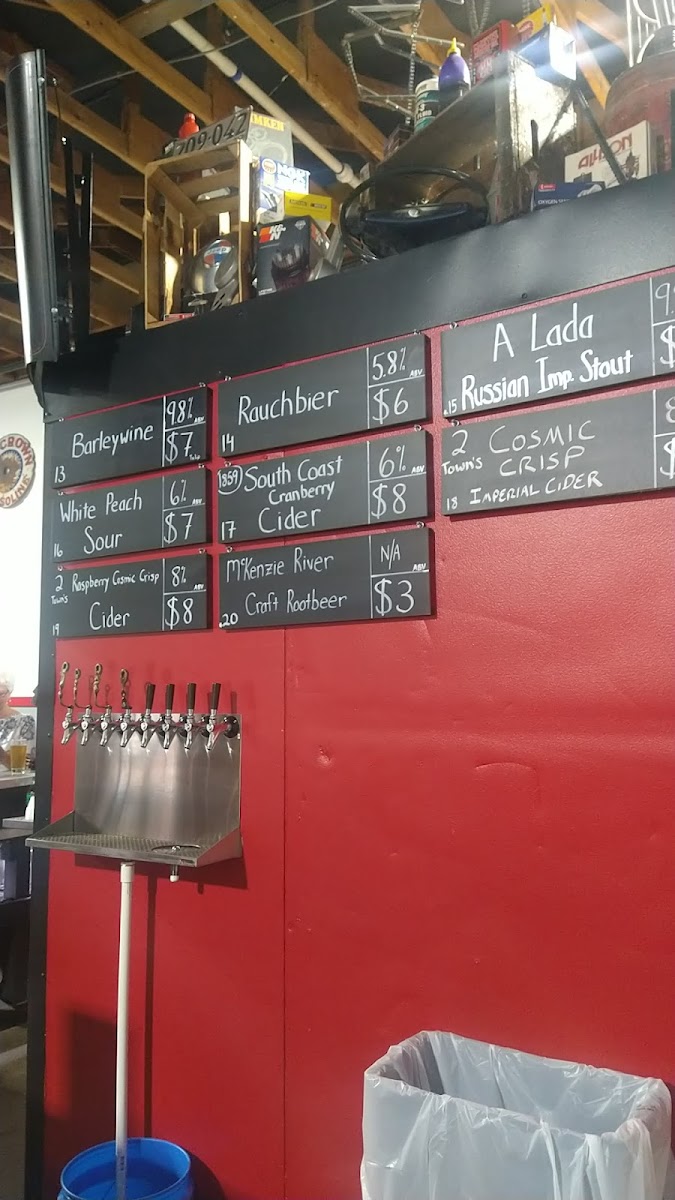 209·042
K&N
ALLSON
CROWN
GASOLINE
Barleywine
9.8% ABV
$7
13
Rauchbier
5.8% ABV
$6
14
A Lada
Russian Imp. Stout
.15
White Peach
Sour
6% ABV
$7
16
1859 South Coast
Cranberry
Cider
6% ABV
$8
17
2 Cosmic
Town's Crisp
18 Imperial Cider
2 Raspberry Cosmic Crisp
Town's
Cider
8% ABV
$8
19
McKenzie River
Craft Rootbeer
N/A ABV
$3
.20